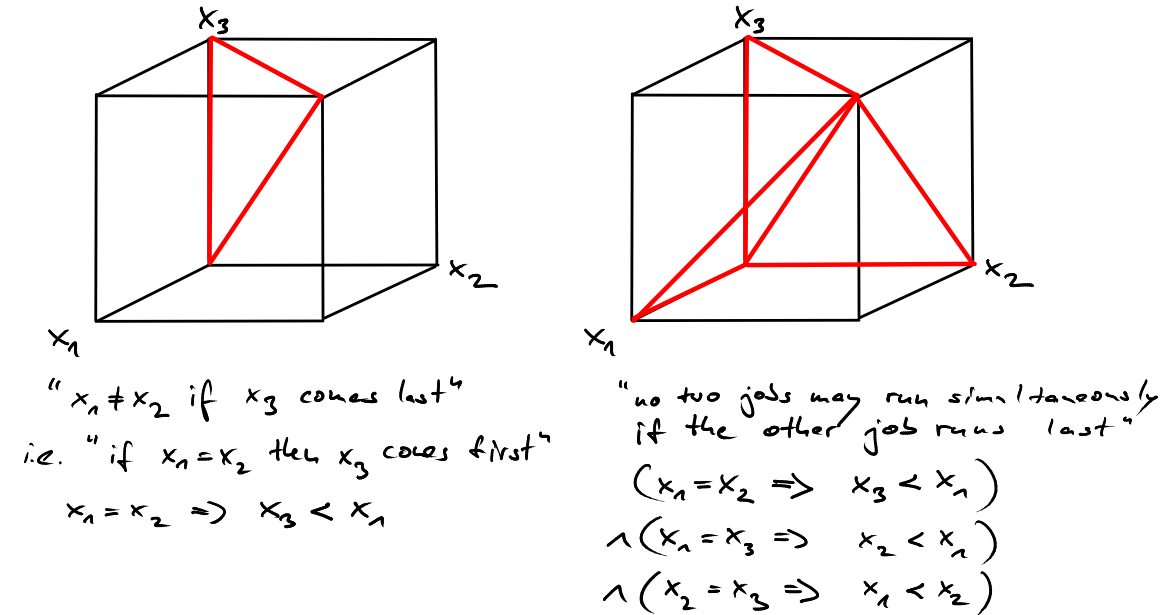 x₃
x₂
x₁
"x₁ ≠ x₂ if x₃ comes last"
i.e. "if x₁ = x₂ then x₃ comes first"
x₁ = x₂ ⇒ x₃ < x₁
x₃
x₂
x₁
"no two jobs may run simultaneously
if the other job runs last"
(x₁ = x₂ ⇒ x₃ < x₁)
∧ (x₁ = x₃ ⇒ x₂ < x₁)
∧ (x₂ = x₃ ⇒ x₁ < x₂)